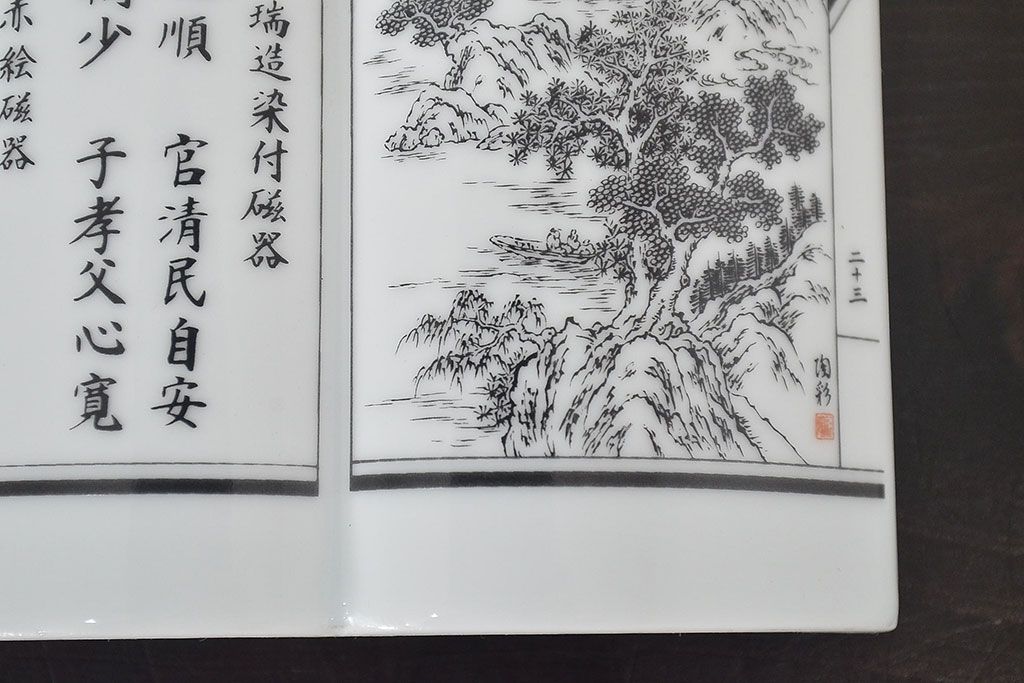 二十三
陶彩
瑞造染付磁器
順 官清民自安
少 子孝父心寛
赤絵磁器